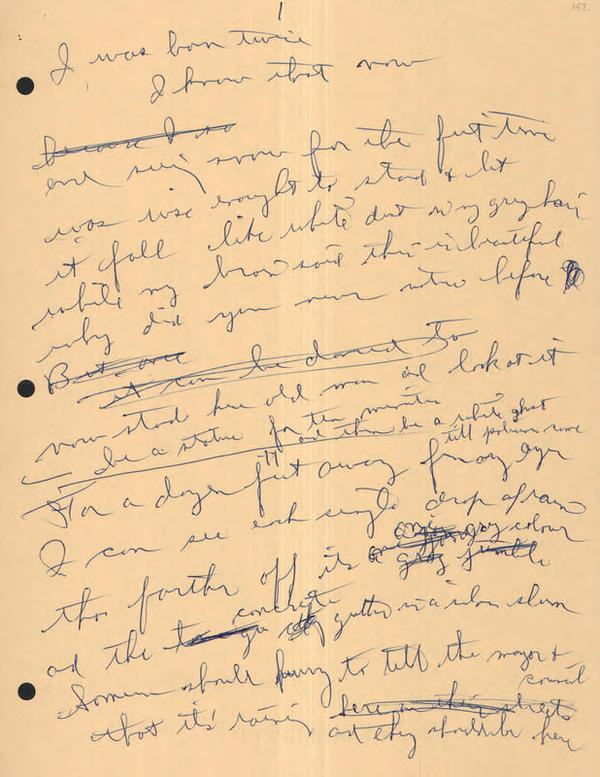 1
157.
I was born twice
I know that now
because I so
and seeing snow for the first time
was wise enought to stand & let
it fall like white dust in my grey hair
while my brow said this is beautiful
why did you never notice before
But one
it can be danced to
now stand here old man and look at it
be a statue for ten minutes
and then be a white ghost
till policemen come
For a dozen feet away from my eyes
I can see each single drop of rain
tho farther off its grey colour
grey jumble
and the concrete gutter is a silver
Someone should hurry to tell the mayor &
council
that it's raining here on this streets
and they should be here